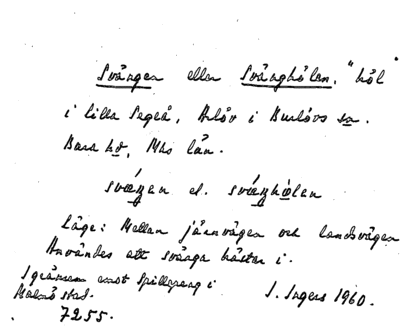 Svängen eller Svänghölen, "höl"
i lilla Segeå, Arlöv i Burlövs sn.
Bara hd, Mhs län.
svæŋen el. svæŋhølen
Läge: Mellan järnvägen och landsvägen
Användes att svänga hästar i.
I gränsen mot Spillepeng i
Malmö stad.
I. Ingers 1960.
7255.